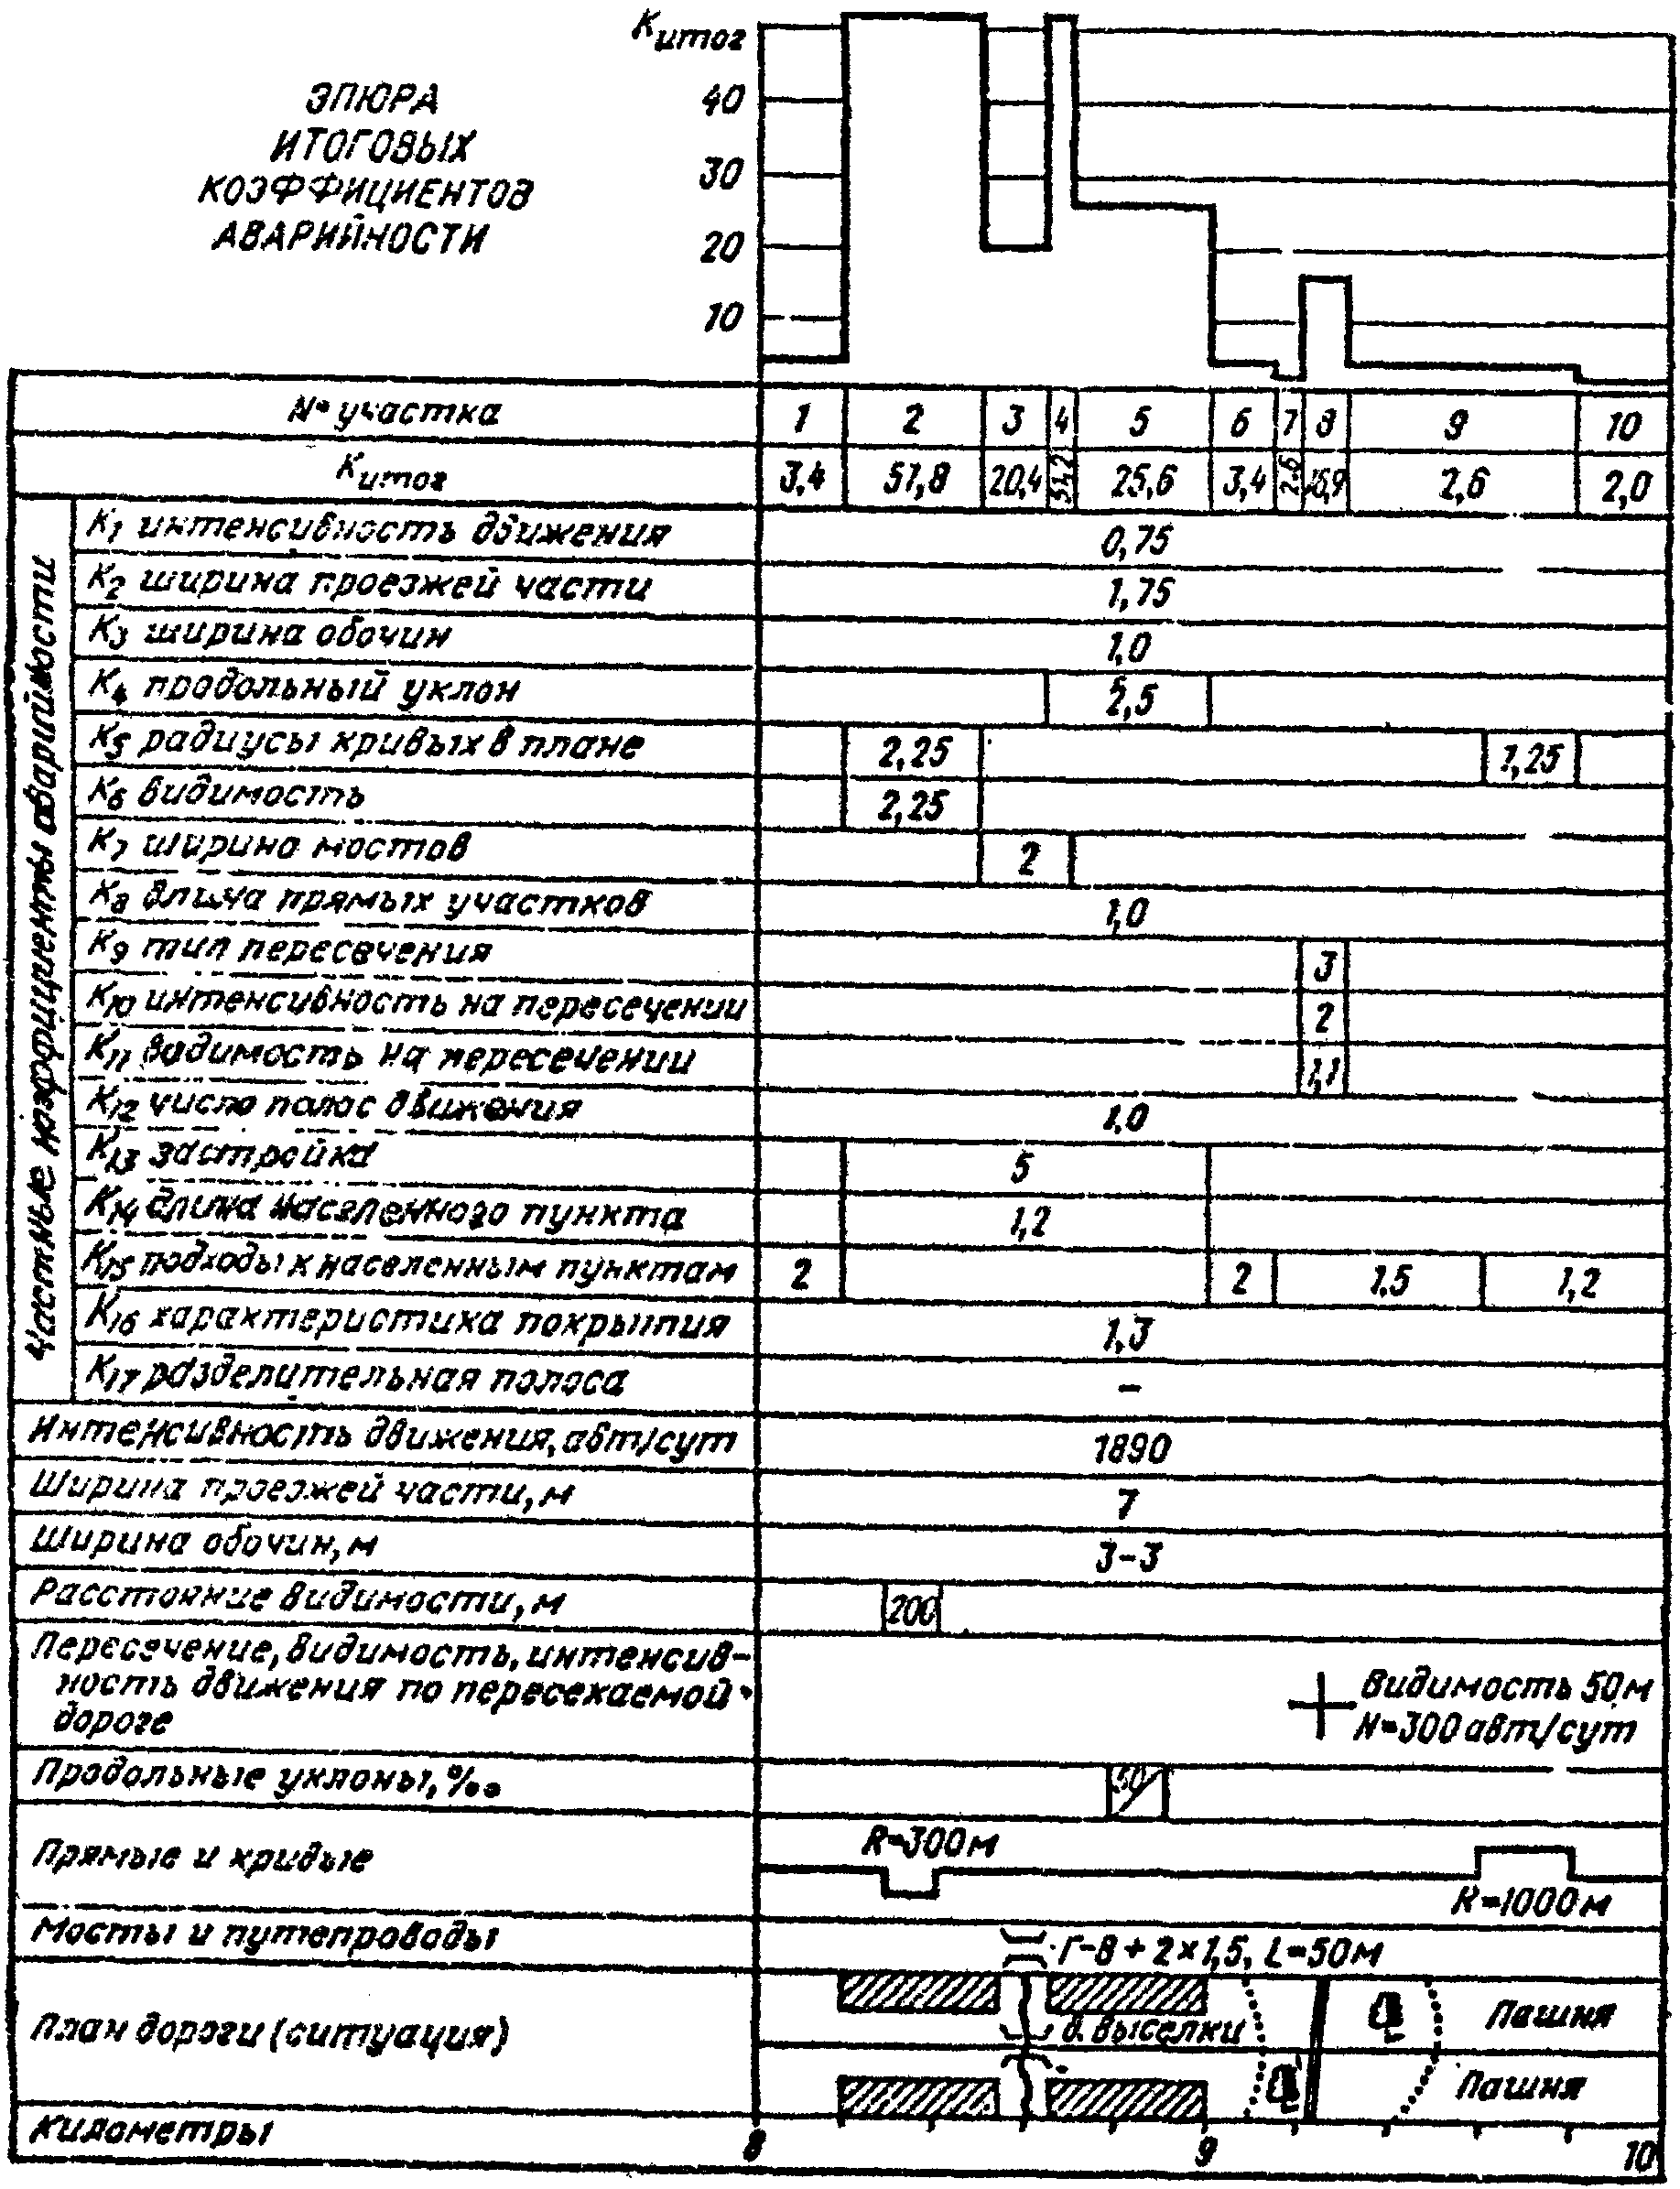 Kитог
ЭПЮРА
ИТОГОВЫХ
КОЭФФИЦИЕНТОВ
АВАРИЙНОСТИ
40
30
20
10
№ участка 1 2 3 4 5 6 7 8 9 10
Kитог 3,4 51,8 20,4 51,2 25,6 3,4 2,6 16,9 2,6 2,0
Частные коэффициенты аварийности
K1 интенсивность движения 0,75
K2 ширина проезжей части 1,75
K3 ширина обочин 1,0
K4 продольный уклон 2,5
K5 радиусы кривых в плане 2,25 1,25
K6 видимость 2,25
K7 ширина мостов 2
K8 длина прямых участков 1,0
K9 тип пересечения 3
K10 интенсивность на пересечении 2
K11 видимость на пересечении 1,1
K12 число полос движения 1,0
K13 застройка 5
K14 длина населенного пункта 1,2
K15 подходы к населенным пунктам 2 2 1.5 1,2
K16 характеристика покрытия 1,3
K17 разделительная полоса –
Интенсивность движения, авт/сут 1890
Ширина проезжей части, м 7
Ширина обочин, м 3-3
Расстояние видимости, м 200
Пересечение, видимость, интенсив-
ность движения по пересекаемой
дороге
Видимость 50м
N=300 авт/сут
Продольные уклоны, ‰ 50
Прямые и кривые
R=300м
R=1000м
Мосты и путепроводы Г-8 + 2×1,5, L=50м
План дороги (ситуация)
д. Выселки
Пашня
Пашня
Километры 8 9 10